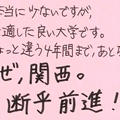 本当に少ないですが,
適した良い大学です。
ちょっと違う4年間まで,あと
ぜ,関西。
断乎前進!